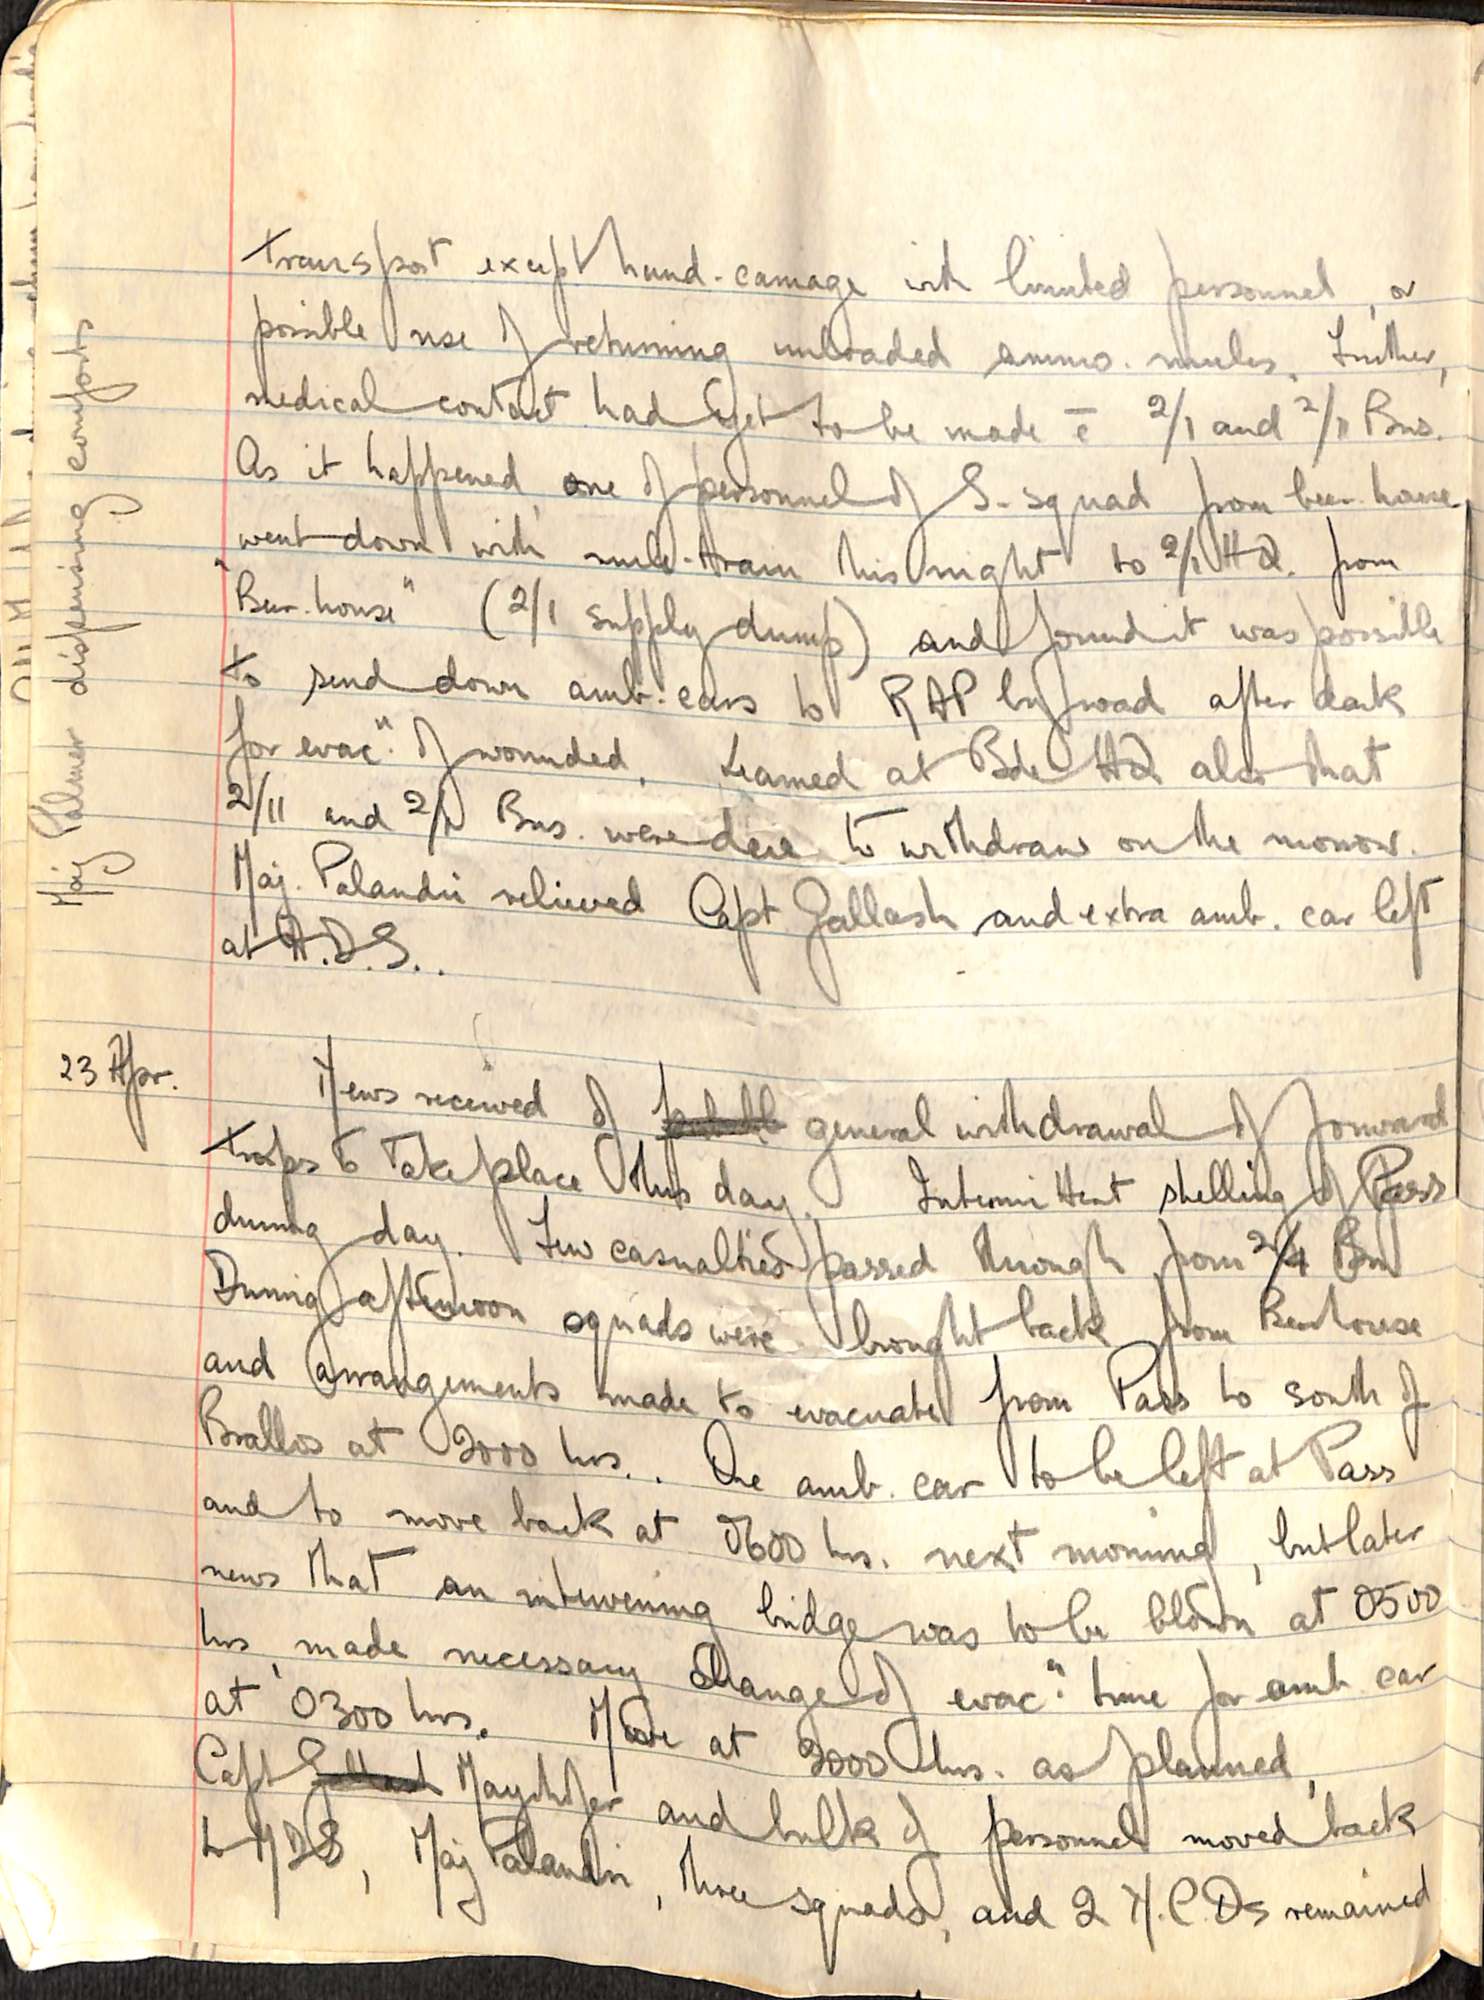 Maj Palmer dispensing comforts
transport except hand-carriage with limited personnel, or
possible use of returning unloaded ammo. mules. Further,
medical contact had yet to be made c̄ 2/1 and 2/11 Bns.
As it happened, one of personnel of S-squad from beer-house
went down with mule-train this night to 2/1 HQ. from
"Beer-house" (2/1 supply dump) and found it was possible
to send down amb. cars to RAP by road after dark
for evacn. of wounded. Learned at Bde HQ also that
2/11 and 2/1 Bns. were due to withdraw on the morrow.
Maj. Palandri relieved Capt Gallash and extra amb. car left
at A.D.S..
23 Apr. News received of general withdrawal of forward
troops to take place this day. Intermittent shelling of Pass
during day. Few casualties passed through from 2/4 Bn
During afternoon squads were brought back from Beerhouse
and arrangements made to evacuate from Pass to south of
Brallos at 2000 hrs.. One amb. car to be left at Pass
and to move back at 0600 hrs. next morning, but later
news that an intervening bridge was to be blown at 0500
hrs, made necessary change of evacn. time for amb. car
at 0300 hrs. Move at 2000 hrs. as planned,
Capt Gallash Mayrhofer and bulk of personnel moved back
to MDS, Maj Palandri, three squads, and 2 N.C.Os remained